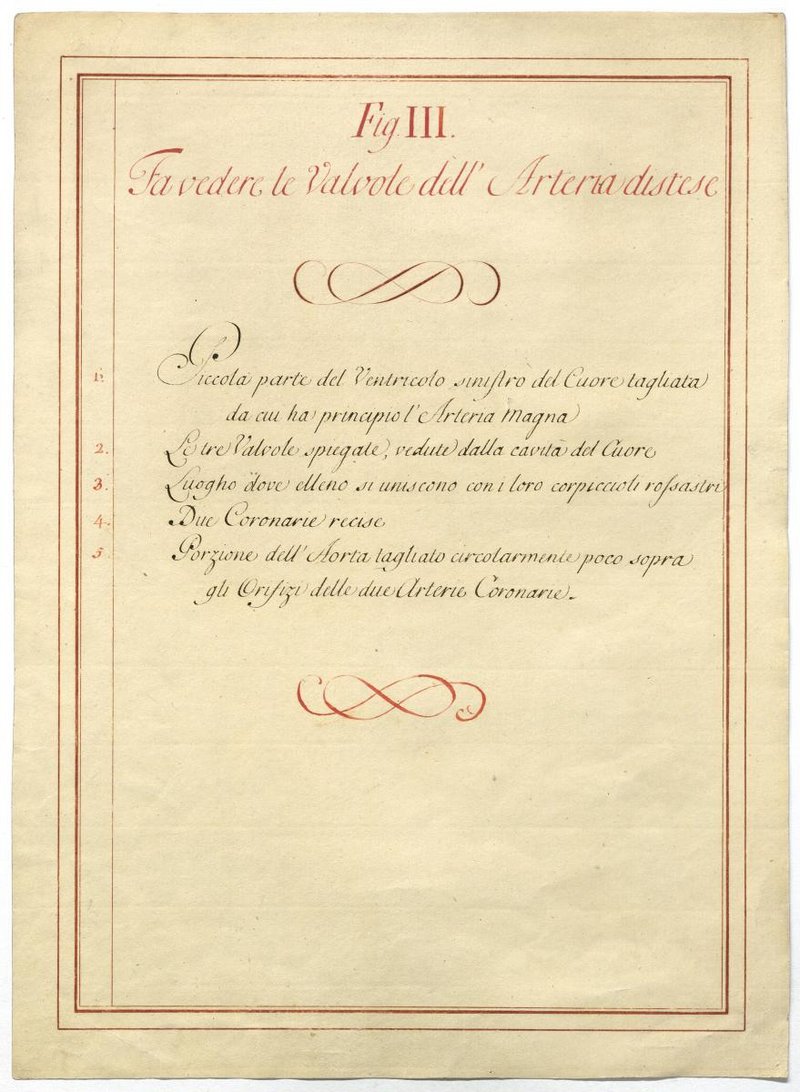 Fig. III.
Fa vedere le Valvole dell' Arteria distese
1. Piccola parte del Ventricolo sinistro del Cuore tagliata
da cui ha principio l'Arteria magna
2. Le tre Valvole spiegate, vedute dalla cavità del Cuore
3. Luogho dove elleno si uniscono con i loro corpiccioli rossastri
4. Due Coronarie recise
5. Porzione dell'Aorta tagliato circolarmente poco sopra
gli Orifizi delle due Arterie Coronarie.